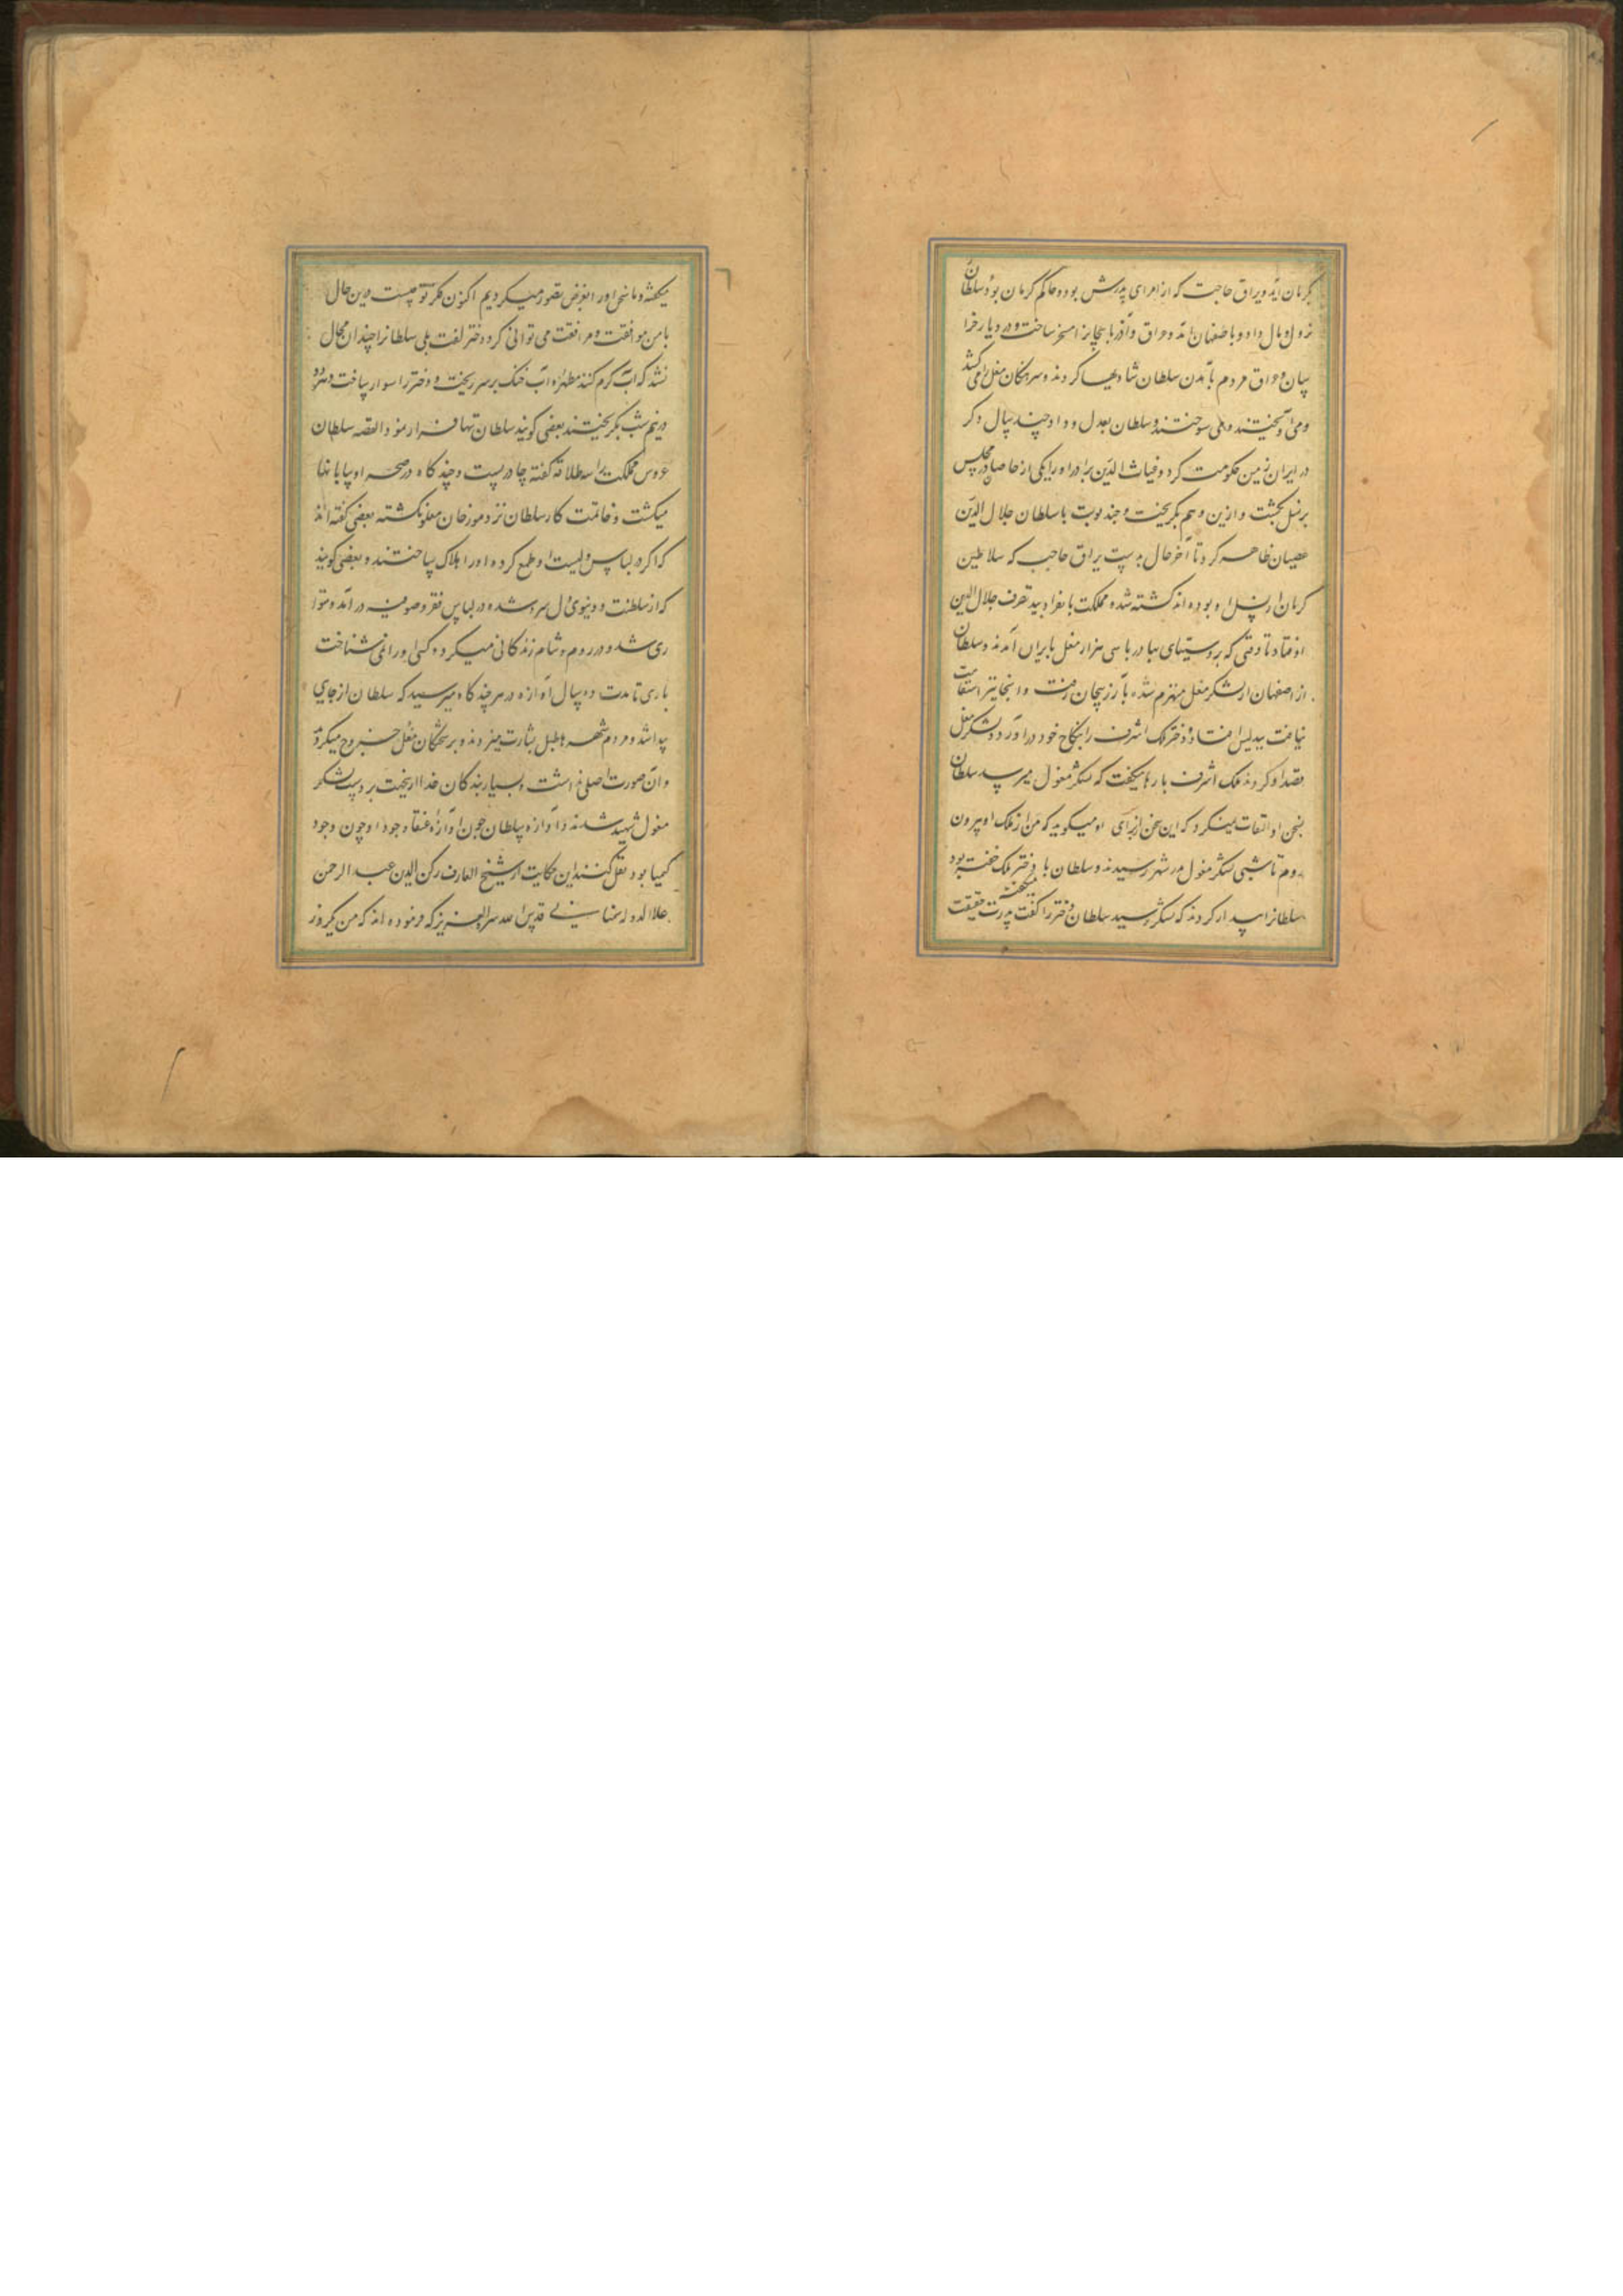 بکرمان آمد و براق حاجب که از امرای پدرش بود و حاکم کرمان بود سلطانرا
نزول و مال داد و باصفهان آمد و عراق و آذربایجانرا مسخر ساخت و در دیار خرا
سان و عراق مردم بآمدن سلطان شادیها کردند و سرهنکان مغل را می کشتند
و می آویختند و می سوختند و سلطان بعدل و داد چند سال دکر
در ایران زمین حکومت کرد و غیاث الدین برادر او را یکی از خاصان در مجلس
بکشت و ازین وهم بکریخت و چند نوبت با سلطان جلال الدین
عصیان ظاهر کرد تا آخر حال بدست براق حاجب که سلاطین
کرمان از نسل او بوده اند کشته شد و مملکت بانفراد بید تصرف جلال الدین
افتاد تا وقتی که بهادر با سی هزار مغل بایران آمدند و سلطان
از اصفهان از لشکر مغل منهزم شده بآذربیجان رفت و آنجا نیز استقامت
نیافت ببدلیس افتاد و دختر ملک اشرف را بنکاح خود درآورد و لشکر مغل
قصد او کردند ملک اشرف بارها میکفت که لشکر مغول میرسد سلطان
بسخن او التفات نمیکرد که این سخن از برای او میکوید که من از ملک او بیرون
روم تا شبی لشکر مغول در شهر رسیدند و سلطان با دختر ملک خفته بود
سلطانرا بیدار کردند که لشکر رسید سلطان دختر را کفت پدرت حقیقت
میکفته و ما سخن او را بغرض تصور میکردیم اکنون فکر تو چیست درین حال
با من موافقت و مرافقت می توانی کرد دختر کفت بلی سلطانرا چندان مجال
نشد که آب کرم کنند مطهره آب خنک بر سر ریخت و دختر را سوار ساخت و هر دو
در نیم شب بکریختند بعضی کویند سلطان تنها فرار نمود القصه سلطان
عروس مملکت را سه طلاقه کفته چادر بست و چند کاه در صحرا و بیابانها
میکشت و خاتمت کار سلطان نزد مورخان معلوم نکشته بعضی کفته اند
که اکراد لباس و اسب او طمع کرده او را هلاک ساختند و بعضی کویند
که از سلطنت و دنیوی دل سرد شده در لباس فقر و صوفیه در آمد و متوا
ری شد و در روم و شام زندکانی میکرد و کسی او را نمی شناخت
باری تا مدت ده سال آوازه در هر چند کاه میرسید که سلطان از جایی
پیدا شد و مردم شهرها طبل بشارت میزدند و بر شحنکان مغل خروج میکردند
و آن صورت اصلی نداشت و بسیار بندکان خدا ازین جهت بر دست لشکر
مغول شهید شدند و آوازه سلطان چون آوازه عنقا و وجود او چون وجود
کیمیا بود نقل کنند این حکایت از شیخ العارف رکن الدین عبد الرحمن
علاالدوله سمنانی قدس الله سره العزیز که فرموده اند که من یکروز